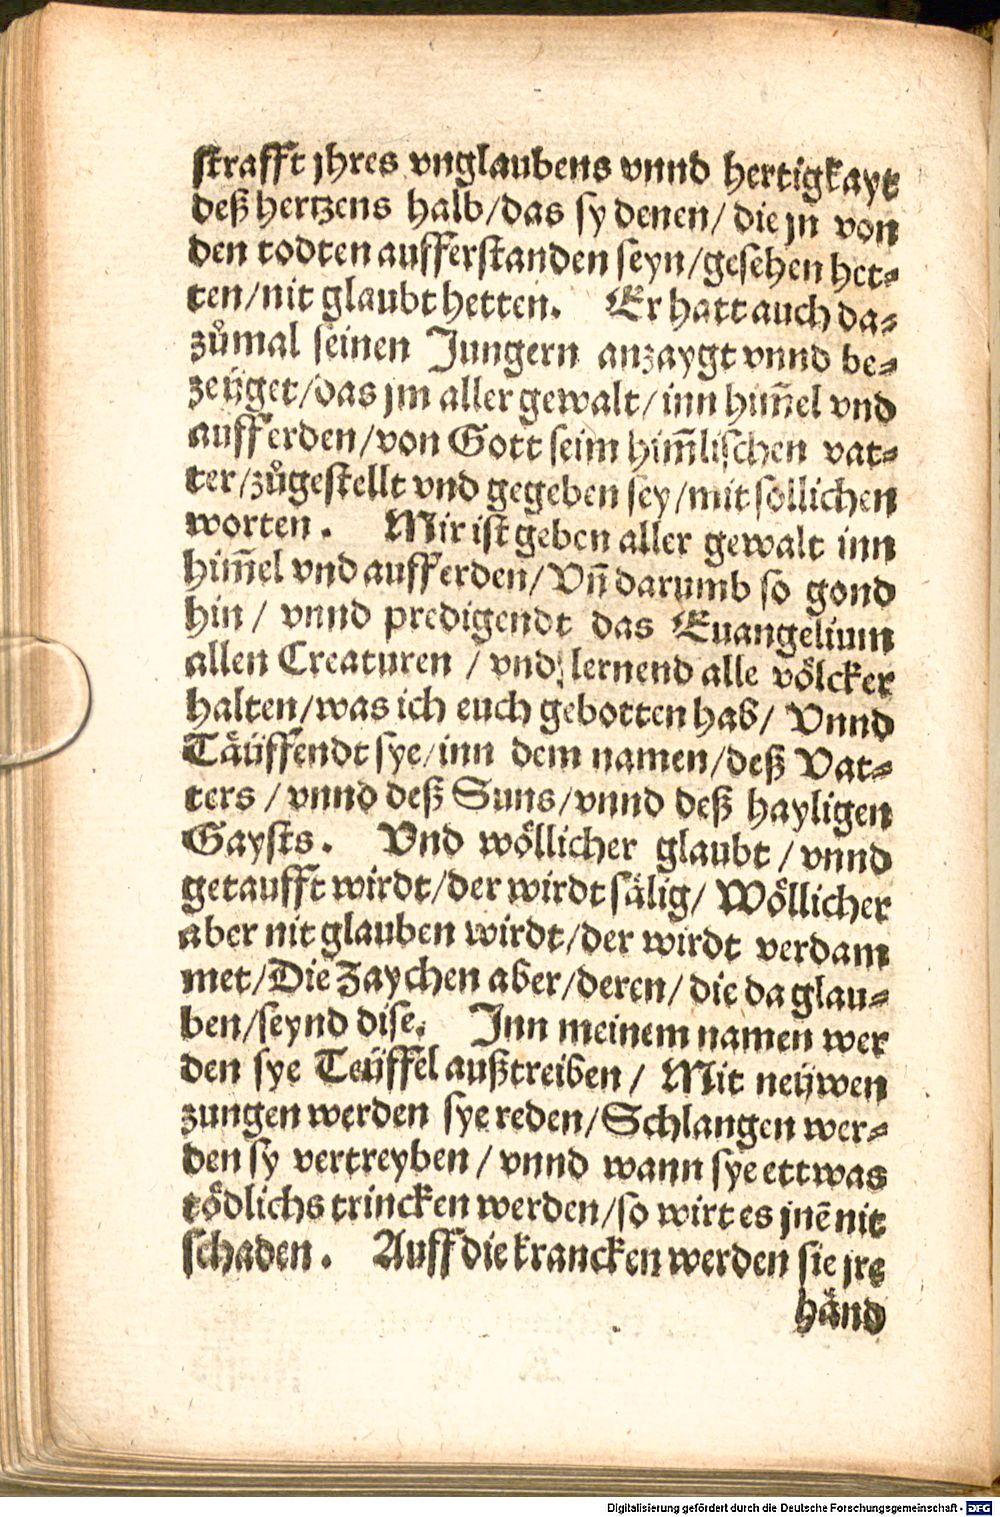 strafft jhres vnglaubens vnnd hertigkayt
deß hertzens halb/das sy denen/ die jn von
den todten aufferstanden seyn/gesehen het⸗
ten/nit glaubt hetten. Er hatt auch da⸗
zůmal seinen Jungern anzaygt vnnd be⸗
zeüget/das jm aller gewalt/inn him̃el vnd
auff erden/von Gott seim him̃lischen vat⸗
ter/zůgestellt vnd gegeben sey/mit sollichen
worten. Mir ist geben aller gewalt inn
him̃el vnd auff erden/Vñ darumb so gond
hin/ vnnd predigendt das Euangelium
allen Creaturen /vnd lernend alle völcker
halten/was ich euch gebotten hab/ Vnnd
Täüffendt sye/inn dem namen/deß Vat⸗
ters /vnnd deß Suns/vnnd deß hayligen
Gaysts. Vnd wöllicher glaubt /vnnd
getaufft wirdt/der wirdt sälig/ Wöllicher
aber nit glauben wirdt/der wirdt verdam
met/Die Zaychen aber/deren/ die da glau⸗
ben/seynd dise. Inn meinem namen wer
den sye Teüffel außtreiben/ Mit neüwen
zungen werden sye reden/Schlangen wer⸗
den sy vertreyben /vnnd wann sye ettwas
tödlichs trincken werden/so wirt es jnē nit
schaden. Auff die krancken werden sie jre
händ
Digitalisierung gefördert durch die Deutsche Forschungsgemeinschaft - DFG